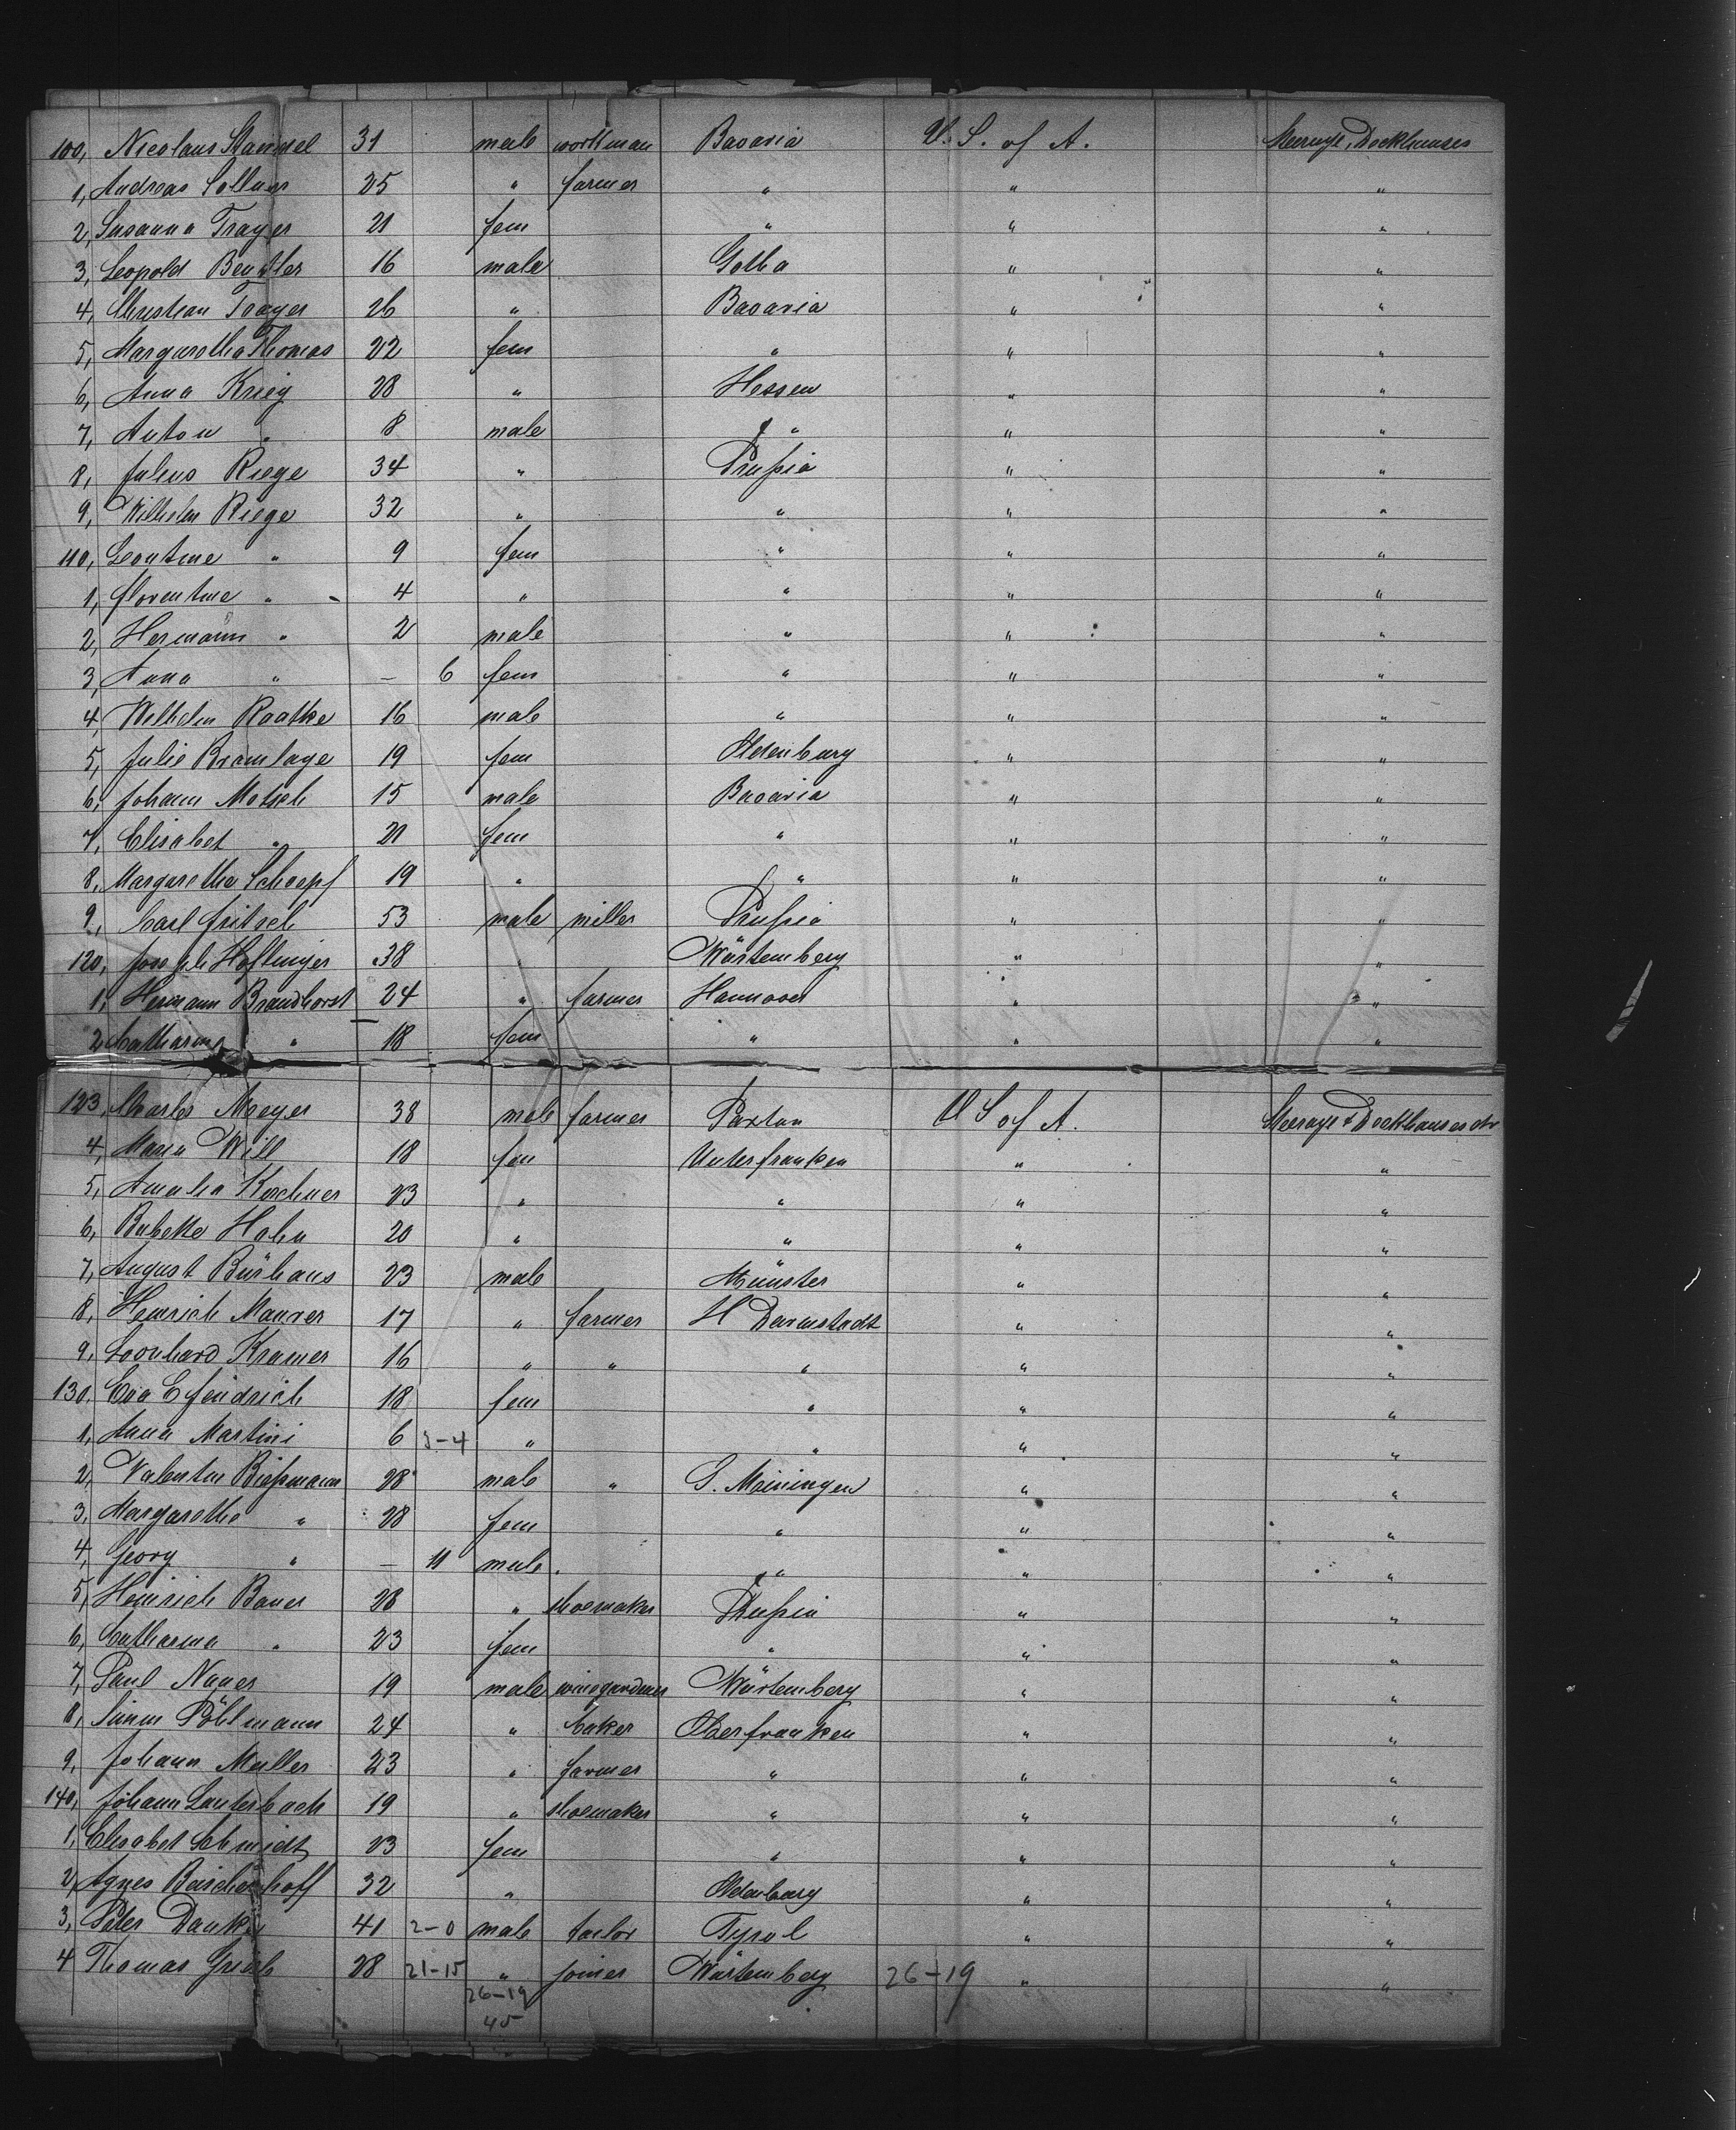 100, Nicolaus Staindel 31 male workman Bavaria U. S. of A. Steerage, Deckhauses
1, Andreas Sollner 25 " farmer " " "
2, Susanna Trayer 21 fem " " "
3, Leopold Beutler 16 male Gotha " "
4, Christian Trayer 26 " Bavaria " "
5, Margaretha Thomas 22 fem " " "
6, Anna Krieg 28 " Hessen " "
7, Anton " 8 male " " "
8, Julius Riege 34 " Prußia " "
9, Wilhelm Riege 32 " " " "
110, Leontine " 9 fem " " "
1, Florentine " 4 " " " "
2, Hermann " 2 male " " "
3, Anna " – 6 fem " " "
4, Wilhelm Raatke 16 male " " "
5, Julie Bramlage 19 fem Oldenburg " "
6, Johann Motsch 15 male Bavaria " "
7, Elisabet " 21 fem " " "
8, Margaretha Schoepf 19 " " " "
9, Carl Fritsch 53 male miller Prußia " "
120, Joseph Hoflinger 38 " Würtemberg " "
1, Hermann Brandhorst 24 " farmer Hannover " "
2 Catharina " 18 fem " " "
123, Charles Meyer 38 male farmer Paxton U S of A. Steerage & Deckhauses
4, Maria Will 18 fem Unterfranken " "
5, Amalia Kirchner 23 " " " "
6, Babette Hahn 20 " " " "
7, August Bürhaus 23 male Münster " "
8, Heinrich Maurer 17 " farmer H Darmstadt " "
9, Leonhard Kramer 16 " " " " "
130, Eva E Fendrich 18 fem " " "
1, Anna Martini 6 5-4 " " " "
2, Valentin Bießmann 28 male " S. Meiningen " "
3, Margaretha " 28 fem " " "
4, Georg " – 11 male " " "
5, Heinrich Bauer 28 " shoemaker Prußia " "
6, Catharina " 23 fem " " "
7, Paul Nauer 19 male winegardener Würtemberg " "
8, Simon Pöhlmann 24 " baker Oberfranken " "
9, Johann Muller 23 " farmer " " "
140, Johann Lauterbach 19 " shoemaker " " "
1, Elisabet Schmidt 23 fem " " "
2, Agnes 32 " Oldenburg " "
3, Peter 41 2-0 male tailor Tyrol " "
4 Thomas 28 21-15 " joiner Würtemberg 26-19 " "
26-19
45